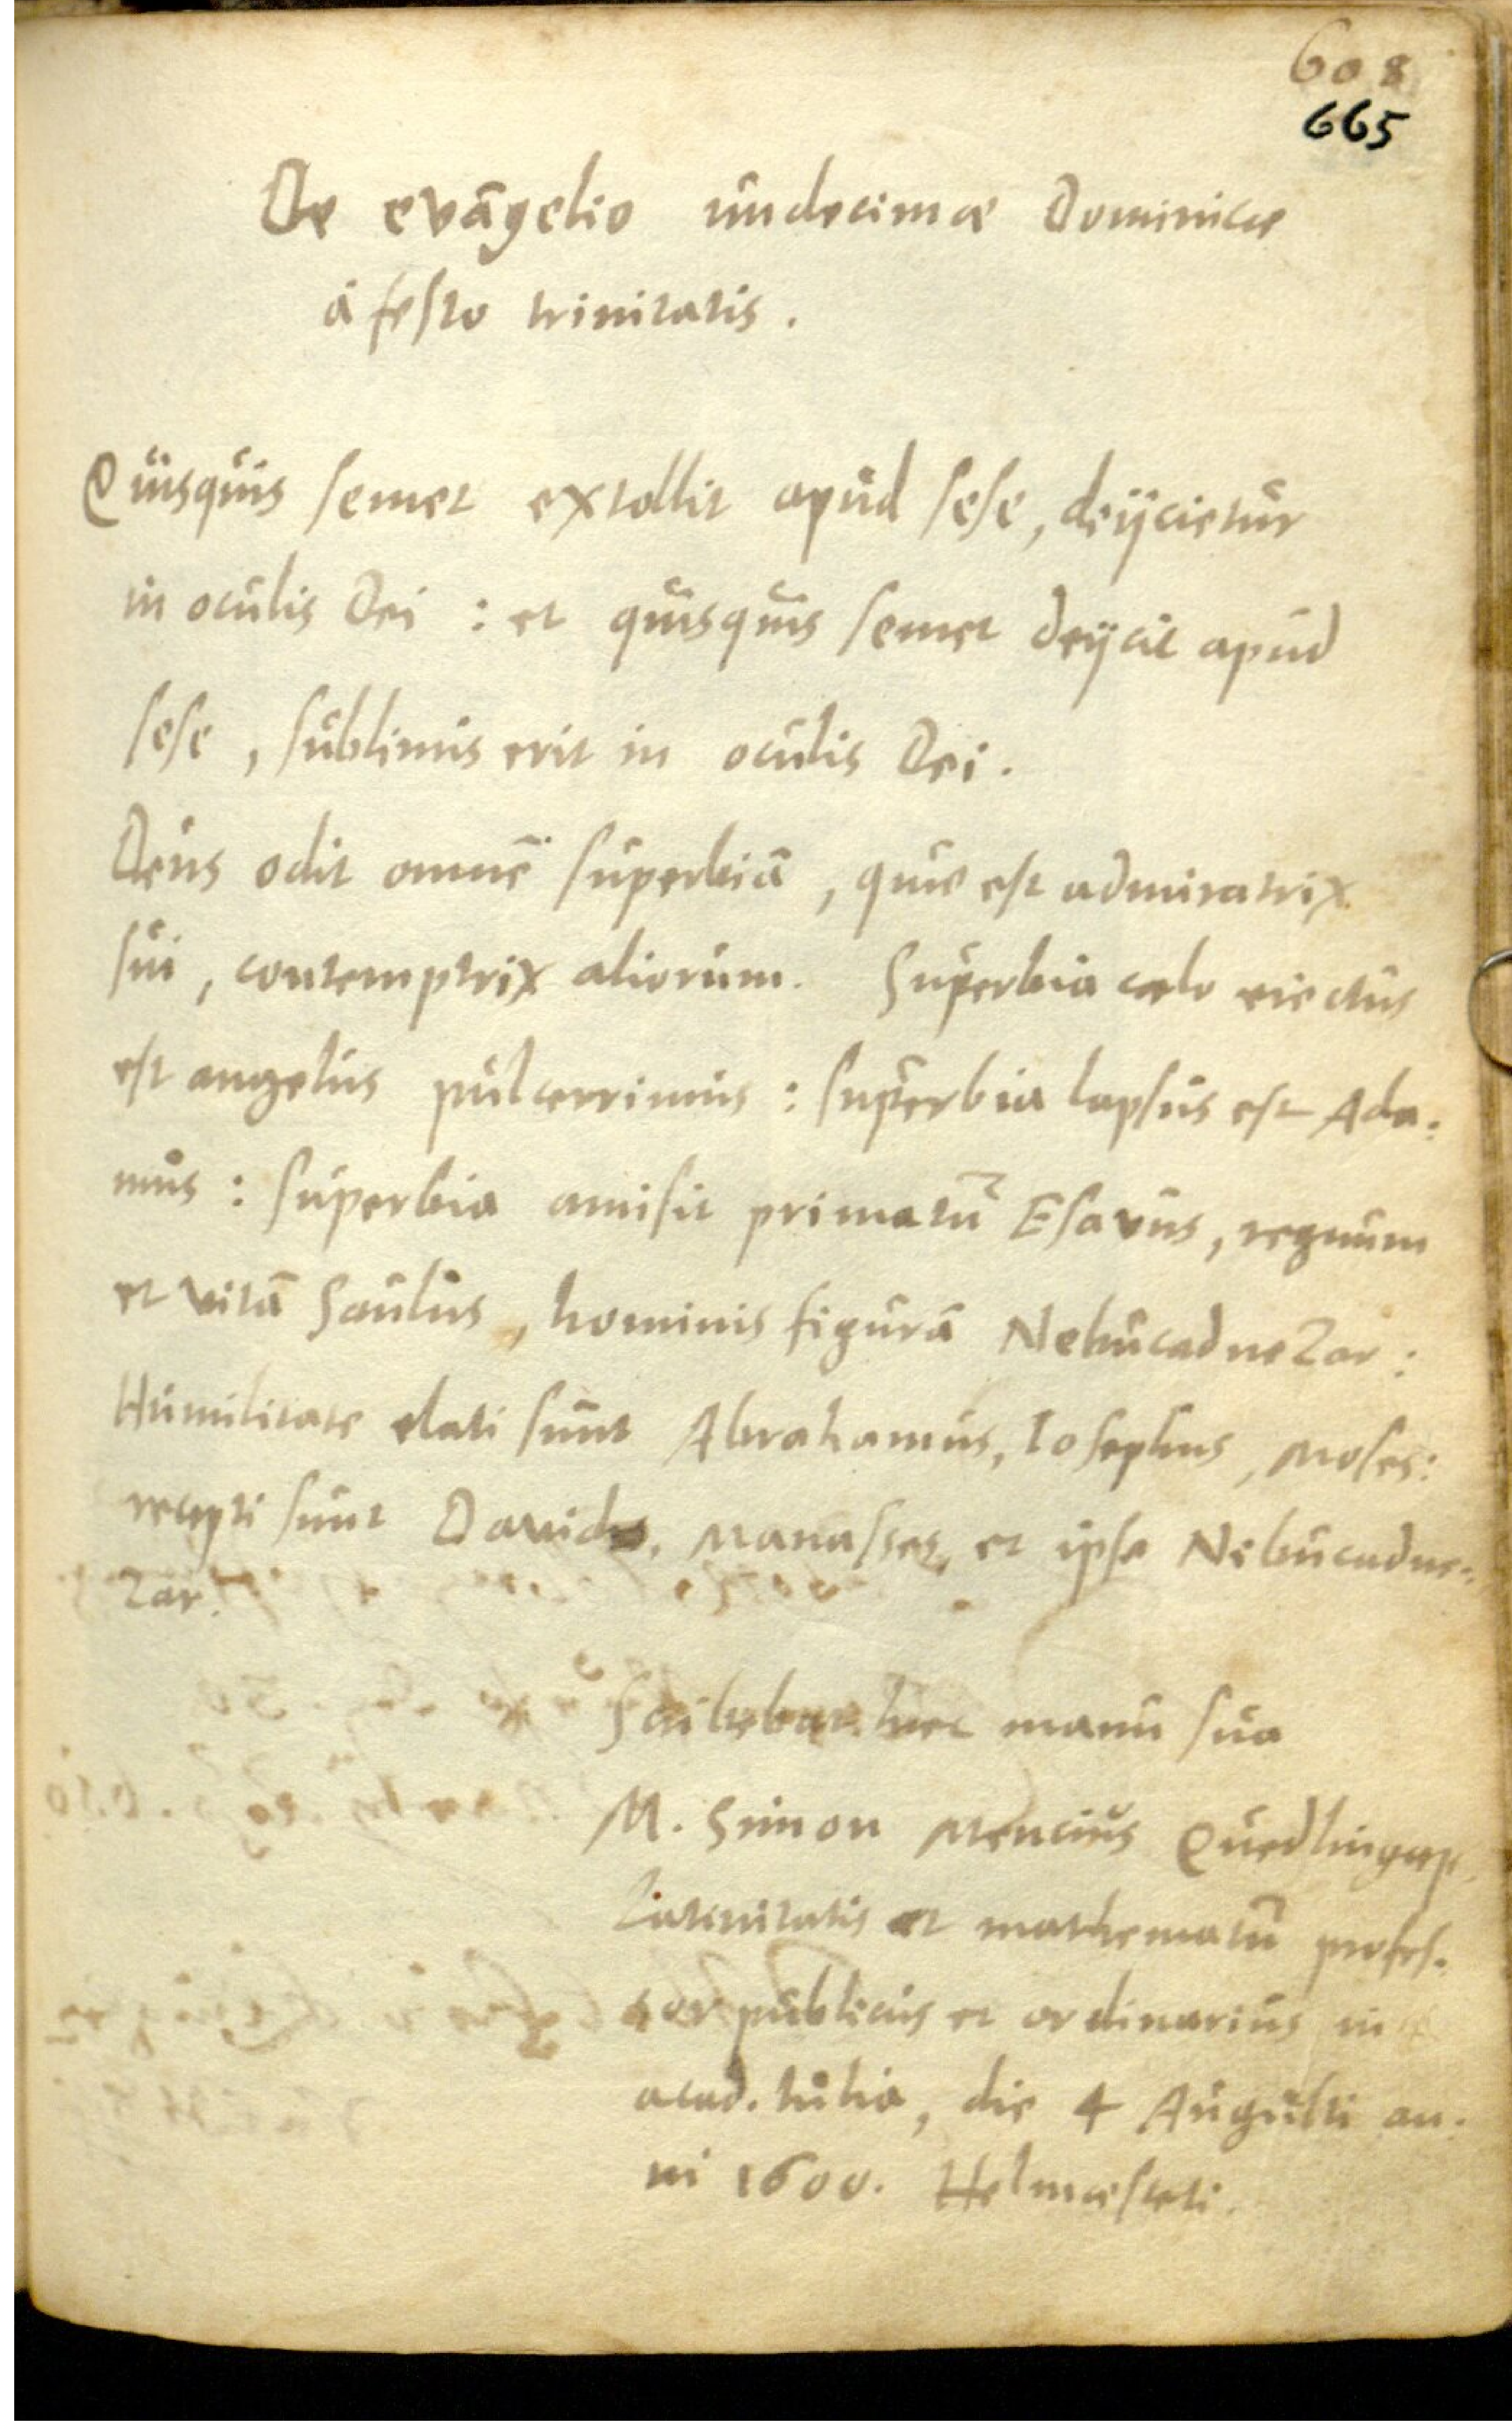 608
665
De evāgelio undecimæ Dominicæ
à festo trinitatis.
Quisquis semet extollit apud sese, deijcietur
in oculis Dei : et quisquis semet deijcit apud
sese, sublimis erit in oculis Dei.
Deus odit omnē superbiā, quæ est admiratrix
sui, contemptrix aliorum. Superbia cælo eiectus
est angelus pulcerrimus : superbia lapsus est Ada:
mus : superbia amisit primatū Esavus, regnum
et vitā Saulus, hominis figurā Nebucadnezar :
Humilitate elati sunt Abrahamus, Iosephus, Moses:
recepti sunt Davides, Manasses, et ipse Nebucadne:
zar.
Scribebat hæc manu sua
M. Simon Mencius Quedlingap.
Latinitatis et mathematū profes.
sor publicus et ordinarius in
acad. Iulia, die 4 Augusti an.
ni 1600. Helmæsteti.